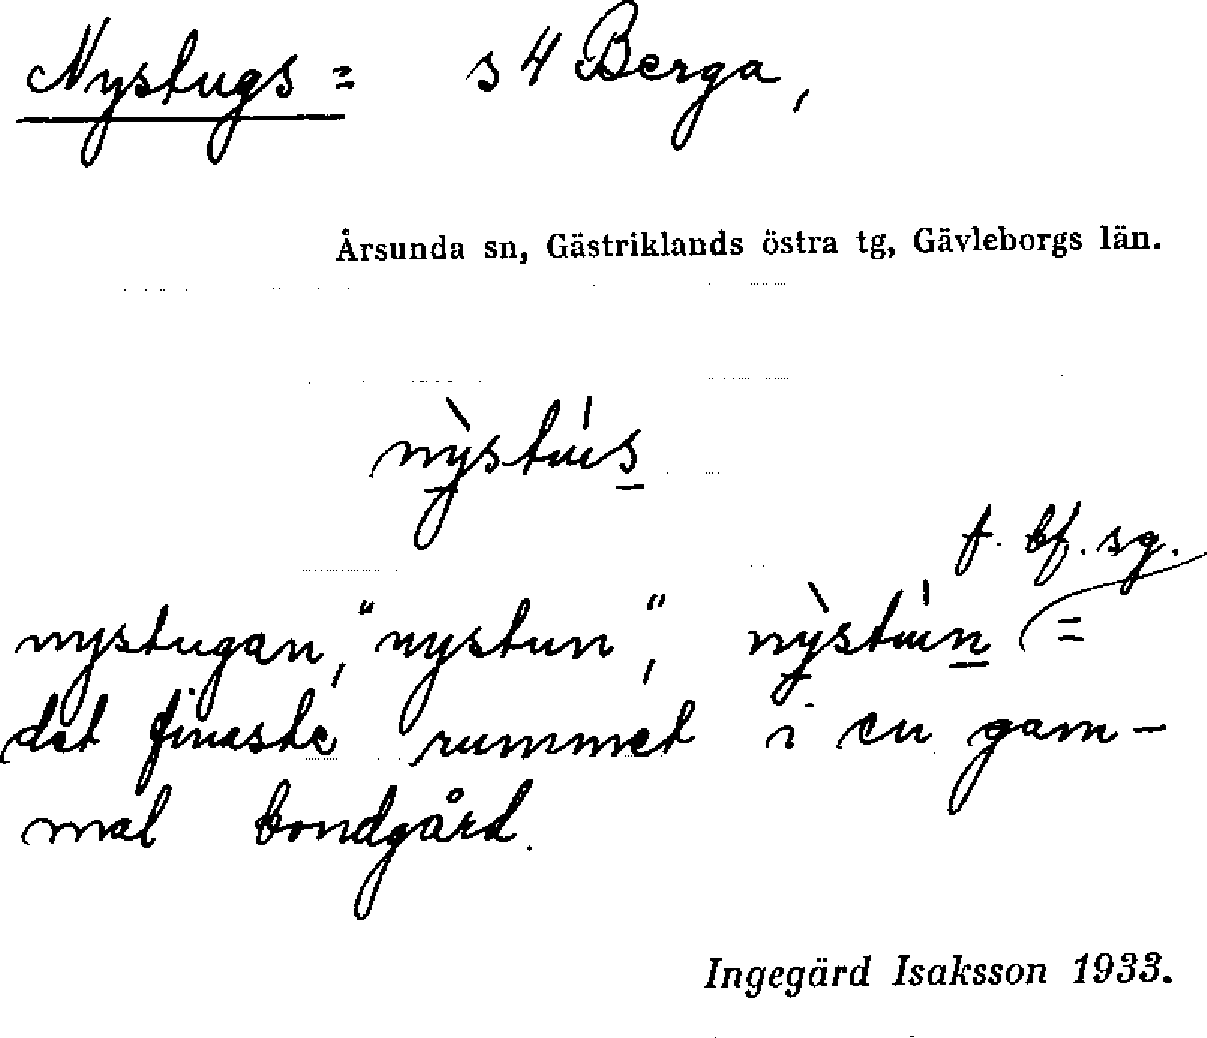 Nystugs= s 4 Berga,
Årsunda sn, Gästriklands östra tg, Gävleborgs län.
nỳstús
f. bf. sg.
nystugan, "nystun", nỳstún =
det finaste rummet i en gam-
mal bondgård.
Ingegärd Isaksson 1933.